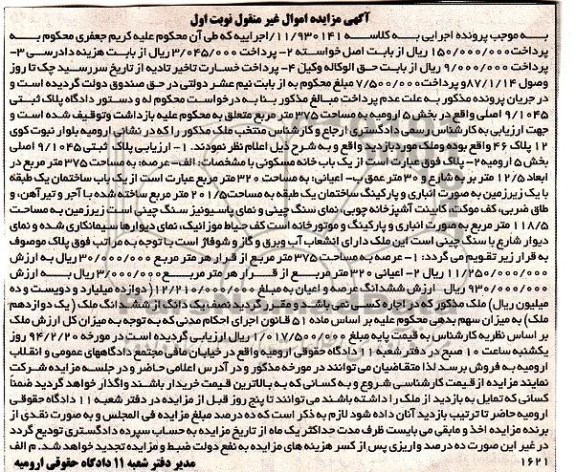 آگهی مزایده اموال غیر منقول نوبت اول
به موجب پرونده اجرایی به کلاسه ۱۱/۹۳۰۱۴۱/اجراییه که طی آن محکوم علیه کریم جعفری محکوم به
پرداخت ۱۵۰/۰۰۰/۰۰۰ ریال از بابت اصل خواسته ۲- پرداخت ۳/۰۴۵/۰۰۰ ریال از بابت هزینه دادرسی ۳-
پرداخت ۹/۰۰۰/۰۰۰ ریال از بابت حق الوکاله وکیل ۴- پرداخت خسارت تاخیر تادیه از تاریخ سررسید چک تا روز
وصول ۸۷/۱/۱۴ و پرداخت ۷/۵۰۰/۰۰۰ مبلغ محکوم به از بابت نیم عشر دولتی در حق صندوق دولت گردیده است و
در جریان پرونده مذکور به علت عدم پرداخت مبالغ مذکور بنا به درخواست محکوم له و دستور دادگاه پلاک ثبتی
۹/۱۰۴۵ اصلی واقع در بخش ۵ ارومیه به مساحت ۳۷۵ متر مربع متعلق به محکوم علیه بازداشت وتوقیف شده است و
جهت ارزیابی به کارشناس رسمی دادگستری ارجاع و کارشناس منتخب ملک مذکور را که در نشانی ارومیه بلوار نبوت کوی
۱۲ پلاک ۴۶ واقع بوده وملک مورد بازدید واقع و به شرح ذیل اعلام نظر نمودند. ۱- ارزیابی پلاک ثبتی ۹/۱۰۴۵ اصلی
بخش ۵ ارومیه ۲- پلاک فوق عبارت است از یک باب خانه مسکونی با مشخصات: الف- عرصه: به مساحت ۳۷۵ متر مربع در
ابعاد ۱۲/۵ متر بر به شارع و ۳۰ متر عمق ب- اعیانی: به مساحت ۳۲۰ متر مربع عبارت است از یک باب ساختمان یک طبقه
با یک زیرزمین به صورت انباری و پارکینگ ساختمان یک طبقه به مساحت ۲۰۱/۵ متر مربع ساخته شده با آجر و تیرآهن، و
طاق ضربی، کف موکت، کابینت آشپزخانه چوبی، نمای سنگ چینی و نمای پاسیونیز سنگ چینی است زیرزمین به مساحت
۱۱۸/۵ متر مربع به صورت انباری و پارکینگ و موتورخانه است کف حیاط موزائیک، نمای دیوارها سیمانکاری شده و نمای
دیوار شارع با سنگ چینی است این ملک دارای انشعاب آب وبرق و گاز و شوفاژ است با توجه به مراتب فوق پلاک موصوف
به قرار زیر تقویم می گردد: ۱- عرصه به مساحت ۳۷۵ متر مربع از قرار هر متر مربع ۳۰/۰۰۰/۰۰۰ ریال به ارزش
۱۱/۲۵۰/۰۰۰/۰۰۰ ریال ۲- اعیانی ۳۲۰ متر مربع از قرار هر متر مربع ۳/۰۰۰/۰۰۰ ریال به ارزش
۹۳۰/۰۰۰/۰۰۰ ریال ارزش ششدانگ عرصه و اعیان به مبلغ ۱۲/۲۱۰/۰۰۰/۰۰۰ (دوازده میلیارد و دویست و ده
میلیون ریال) ملک مذکور که در اجاره کسی نمی باشد و مقرر گردید نصف یک دانگ از ششدانگ ملک ( یک دوازدهم
ملک) به میزان سهم بدهی محکوم علیه بر اساس ماده ۵۱ قانون اجرای احکام مدنی که به توجه به میزان کل ارزش ملک
بر اساس نظریه کارشناس به قیمت پایه مبلغ ۱/۰۱۷/۵۰۰/۰۰۰ ریال ارزیابی گردیده است در مورخه ۹۴/۲/۲۰ روز
یکشنبه ساعت ۱۰ صبح در دفتر شعبه ۱۱ دادگاه حقوقی ارومیه واقع در خیابان مافی مجتمع دادگاههای عمومی و انقلاب
ارومیه به فروش برسد لذا متقاضیان می توانند در مورخه مذکور و در آدرس اعلامی حاضر و در جلسه مزایده شرکت
نمایند مزایده از قیمت کارشناسی شروع و به کسانی که به بالاترین قیمت خریدار باشند واگذار خواهد گردید ضمناً
کسانی که تمایل به بازدید از ملک را داشته باشند می توانند تا پنج روز قبل از مزایده در دفتر شعبه ۱۱ دادگاه حقوقی
ارومیه حاضر تا ترتیب بازدید آنان داده شود لازم به ذکر است که ده درصد مبلغ مزایده فی المجلس و به صورت نقدی از
برنده مزایده اخذ و مابقی می بایست ظرف مدت حداکثر یک ماه از تاریخ مزایده به حساب سپرده دادگستری تودیع گردد
در غیر این صورت ده درصد واریزی پس از کسر هزینه های مزایده به نفع دولت ضبط و مزایده تجدید خواهد شد. م الف
۱۶۲۱
مدیر دفتر شعبه ۱۱ دادگاه حقوقی ارومیه